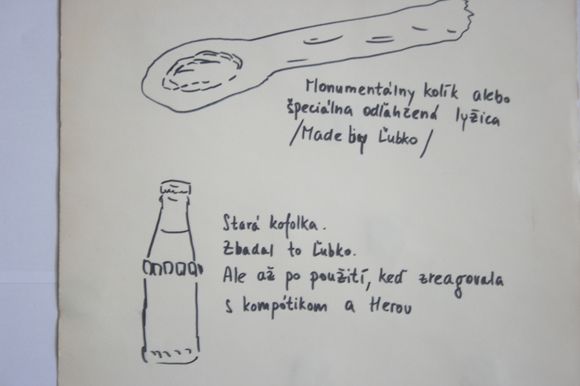 Monumentálny kolík alebo
špeciálna odľahčená lyžica
/Made by Ľubko/
Stará kofolka.
Zbadal to Ľubko.
Ale až po použití, keď zreagovala
s kompótikom a Herou